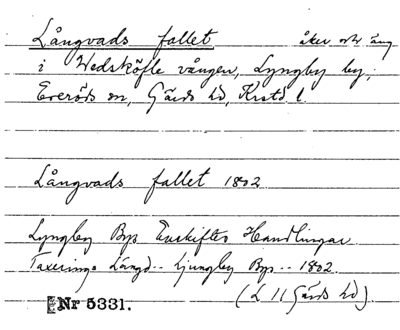 Långvads fallet åker och äng
i Wedsköfle vången, Lyngby by,
Everöds sn, Gärds hd, Krstd l.
Långvads fallet 1802
Lyngby Bys Enskiftes Handlingar
Taxerings Längd -- Ljungby Bys -- 1802.
(L 11 Gärds hd).
Nr 5331.